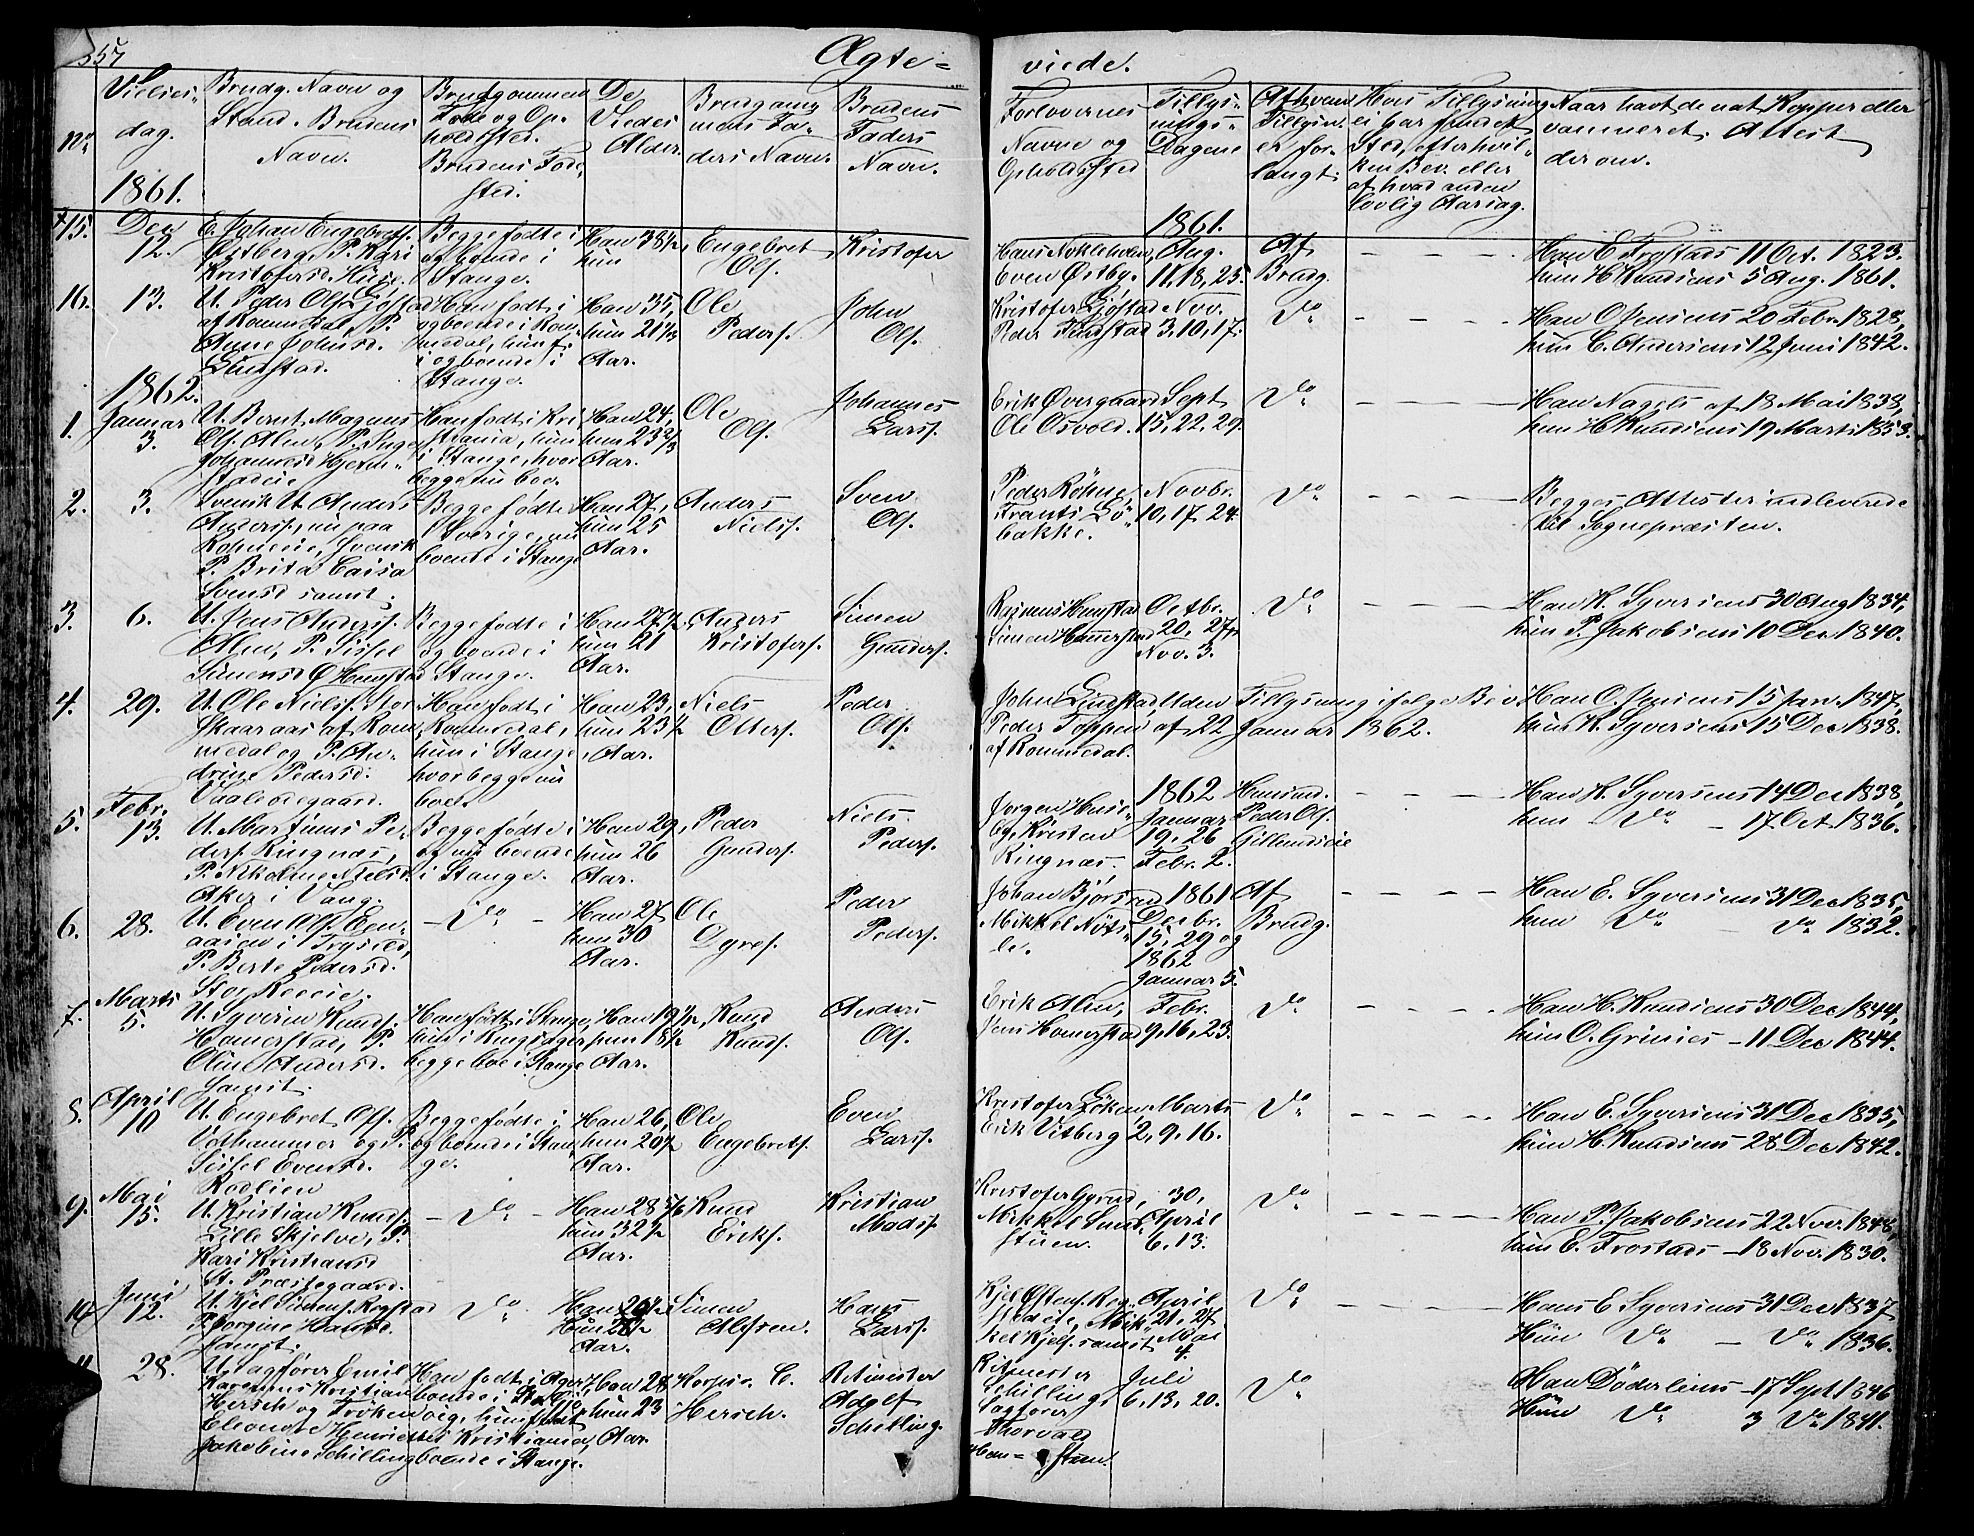 357
Ægte=
viede.
No
Vielses-
dag.
1861.
Brudg. Navn og
Stand. Brudens
Navn.
Brudgommens
Føde og Op-
holdssted.
Brudens Føde-
sted.
De
Viedes
Alder.
Brudgom-
mens Fa-
ders Navn.
Brudens
Faders
Navn.
Forlovernes
Navne og
Opholdssted
Tillys-
nings-
Dagene
Af hvem
Tillysn.
er for-
langt.
Hvis Tillysning
ei har fundet
Sted, efter hvil-
ken Bev. eller
af hvad anden
lovlig Aarsag.
Naar havt de nat. Kopper eller
vaccineret. Attest
derom.
15.
Dec
12.
E. Johan Engebretf.
Østberg, P. Kari
Kristofersd. Huse
Begge fødte i
og boende i
Stange.
Han 38½,
hun
Engebret
Olf.
Kristofer
1861.
Hans Nokleholm,
Even Østby.
Aug.
11, 18, 25.
Af
Brudg.
Han E. Frostads 11 Oct. 1823.
hun H. Knudsens 5 Aug. 1861.
16.
13.
U. Peder Olf. Gjøstad
af Rommedal, P.
Anne Johnsd.
Lundstad.
Han født i
og boende i Rom-
medal, hun f.
i og boende i
Stange.
Han 35,
hun 21½
Aar.
Ole
Pedersf.
John
Olf.
Kristofer Gjøstad
Peder
Nov.
3, 10, 17.
Do
Han O. Jensens 20 Febr. 1828,
hun C. Andersens 12 Juni 1842.
1862.
1.
Januar
3.
U. Bernt Magnus
Olf. Alm, P. Inge
Johannesd. Hjelm-
stadeie
Han født i Kri-
stiania, hun
i Stange, hvor
begge nu boe.
Han 24,
hun 23⅔
Aar.
Ole
Olf.
Johannes
Larsf.
Erik Øvergaard
Ole Osvold.
Sept
15, 22, 29.
Do
Han Nagels af 18 Mai 1838,
hun H. Knudsens 19 Marts 1853.
2.
3.
Svensk U. Anders
Andersf., nu paa
Røhneeie, Svensk
P. Brita Caisa
Svensd. samst.
Begge fødte i
Sverige, nu
boende i Stange
Han 27,
hun 25
Aar.
Anders
Nielsf.
Sven
Olf.
Peder Røhne,
Frants Lö-
bakke.
Novbr.
10, 17, 24.
Do
Begges Attester indleverede
til Sognepræsten.
3.
6.
U. Jens Andersf.
Alm, P. Sissel
Simensd. Ø. Hemstad
Begge fødte i
og boende i
Stange.
Han 27½,
hun 21
Aar.
Anders
Kristofersf.
Simen
Gundersf.
Rasmus Hemstad
Simen Hamerstad
Octbr.
20, 27,
Nov. 3.
Do
Han K. Syversens 30 Aug 1834,
hun P. Jakobsens 10 Dec. 1840.
4.
29.
U. Ole Nielsf. Stor
Skaaraas af Rom-
medal og P. An-
drine Pedersd.
Vaaleødegaard.
Han født i
Rommedal,
hun i Stange,
hvor begge nu
boe.
Han 23,
hun 23½
Aar.
Niels
Ottersf.
Peder
Olf.
John Lundstad,
Peder Toppen
af Rommedal.
Uden Tillysning ifølge Bev.
af 22 Januar 1862.
Han O. Jensens 15 Jan. 1847,
hun K. Syversens 15 Dec 1838.
5.
Febr.
13.
U. Martinus Pe-
dersf. Ringnæs,
P. Nikoline Nielsd.
Aker i Vang.
Begge fødte i
og nu boende
i Stange.
Han 29,
hun 26
Aar.
Peder
Gundersf.
Niels
Pedersf.
Jørgen Huse-
by, Kristen
Ringnæs.
1862
Januar
19, 26
Febr. 2.
Husmd.
Peder Olf.
Gillundseie
Han K. Syversens 14 Dec 1838,
hun Do – 17 Oct. 1836.
6.
28.
U. Even Olf. Een-
aasen i Trysild,
P. Berte Pedersd.
Stor Reeeie.
– Do –
Han 27
hun 30
Aar.
Ole
Dyresf.
Peder
Pedersf.
Johan Bjørsrud
Mikkel Nøts-
le.
1861
Decbr.
15, 29 og
1862
Januar 5.
Af
Brudg.
Han E. Syversens 31 Dec 1835,
hun Do – Do 1832.
7.
Marts
5.
U. Syverin Knudsf.
Hamerstad, P.
Olin Andersd.
Samst.
Han født i Stange,
hun i Ringsager
begge boe i Stange
Han 19½,
hun 18½
Aar.
Knud
Knudsf.
Anders
Olf.
Erik Alm,
Jens Hamerstad
Febr.
9, 16, 23.
Do
Han H. Knudsens 30 Dec 1844,
hun O. Grimes – 11 Dec 1844.
8.
April
10
U. Engebret Olf.
Volhammer og P.
Sissel Evensd.
Rødlien
Begge fødte i
og boende i Stan-
ge.
Han 26,
hun 20½
Aar.
Ole
Engebretsf.
Even
Larsf.
Kristofer Løken
Erik Vitberg
Marts
2, 9, 16.
Do
Han E. Syversens 31 Dec 1835,
hun H. Knudsens 28 Dec 1842.
9.
Mai
15.
U. Kristian Knudsf.
Lille Skjelve, P.
Kari Kristiansd.
St. Præstegaard.
– Do –
Han 28
hun 32½
Aar.
Knud
Eriksf.
Kristian
Madsf.
Kristofer Gyrud,
Mikkel Sund-
stuen.
30,
April
6, 13.
Do
Han P. Jakobsens 22 Nov. 1848,
hun E. Frostads – 18 Nov. 1830.
10.
Juni
12.
U. Kjel Simensf. Rogstad
P. Jørgine Hansd.
Samst.
Do
Han 26½
Hun
Aar.
Simen
Alfsen.
Hans
Larsf.
Kjel Østensf. Rog-
stadeie, Mik-
kel Kjelsf. samst.
April
21, 27,
Mai
4.
Do
Hans E. Syversens 31 Dec 1837
Hun Do – Do 1836.
11.
28.
U. Sagfører Emil
Karenus Kristian
Hersch og Frøken
Eleonore Henriette
Jakobine Schilling
Han født i Ager,
boende i
hun født
i Kristiania,
boende i Stange.
Han 28
hun 23
Aar.
Korpsr. C.
Hersch.
Ritmester
Adolf
Schilling.
Ritmester
Schilling,
Sagfører
Thorvald
Han= stuen.
Juli
6, 13, 20.
Do
Han Döderleins – 17 Sept 1846
Hun Do 3 Do 1841.